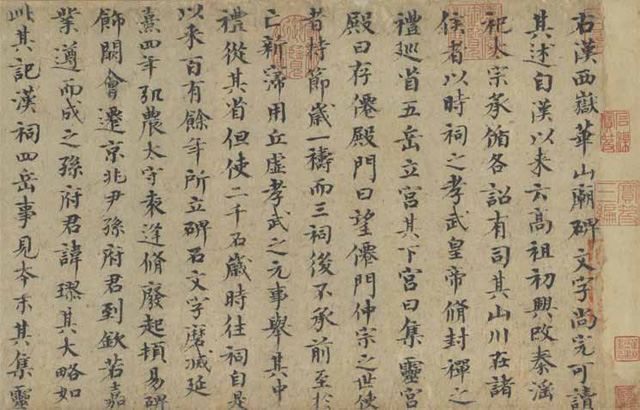 右漢西嶽華山廟碑文字尚完可讀
其述自漢以來云高祖初興改秦淫
祀太宗承循各詔有司其山川在諸
侯者以時祠之孝武皇帝脩封禪之
禮巡省五岳立宮其下宮曰集靈宮
殿曰存僊殿門曰望僊門仲宗之世使
者持節歲一禱而三祠後不承前至於
亡新寖用丘虛孝武之元事舉其中
禮從其省但使二千石歲時往祠自是
以来百有餘年所立碑石文字磨滅延
熹四年弘農太守袁逢脩廢起頓易碑
飾闕會遷京兆尹孫府君到欽若嘉
業遵而成之孫府君諱璆其大略如
此其記漢祠四岳事見本末其集靈